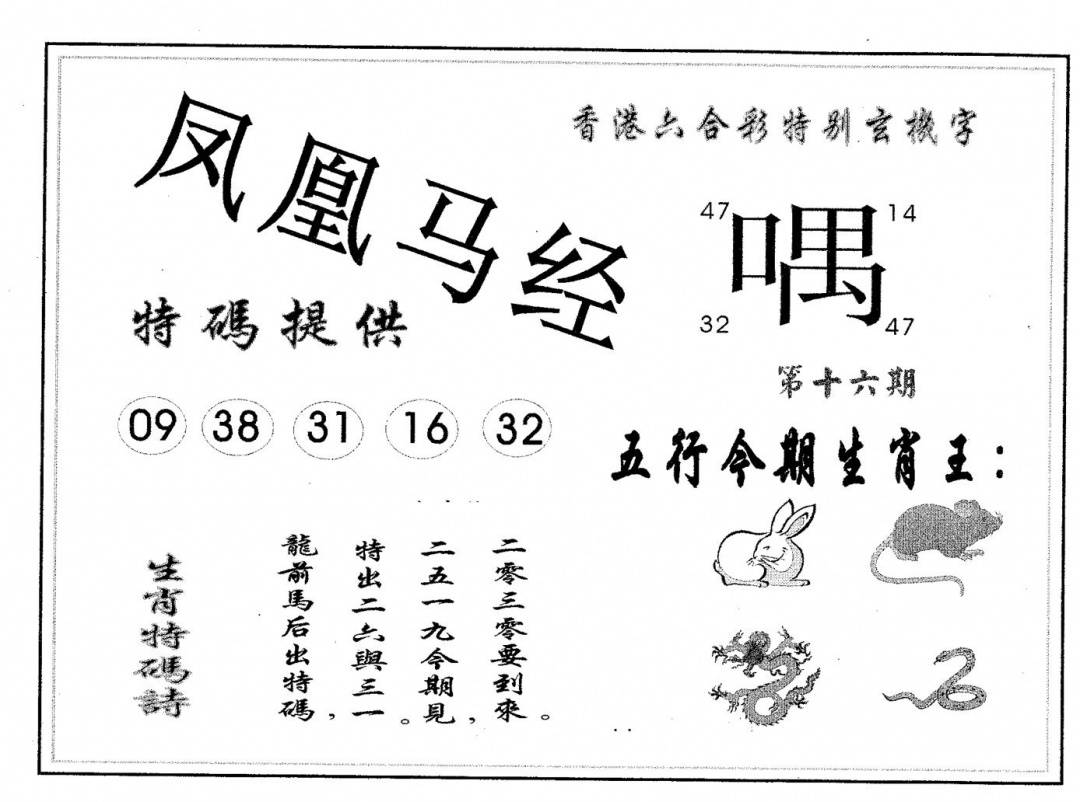 凤凰马经
香港六合彩特别玄機字
47 14
喁
32 47
第十六期
特碼提供
09 38 31 16 32
五行今期生肖王：
生肖特碼詩
龍前馬后出特碼，
特出二六與三一。
二五一九今期見，
二零三零要到來。